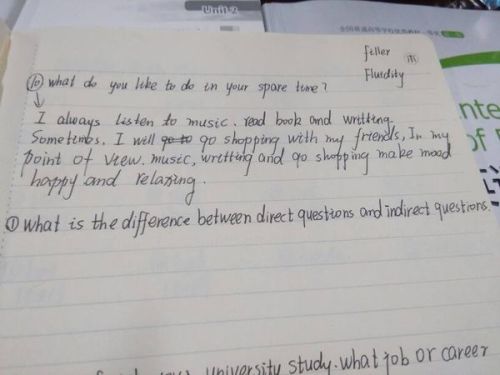 Unit 2
filler
Fluidity
⑩ what do you like to do in your spare time?
I always listen to music. read book and writting.
Sometimes. I will go to go shopping with my friends, In my
point of view. music, writting and go shopping make mood
happy and relaxing.
① What is the difference between direct questions and indirect questions.
university study. what job or career